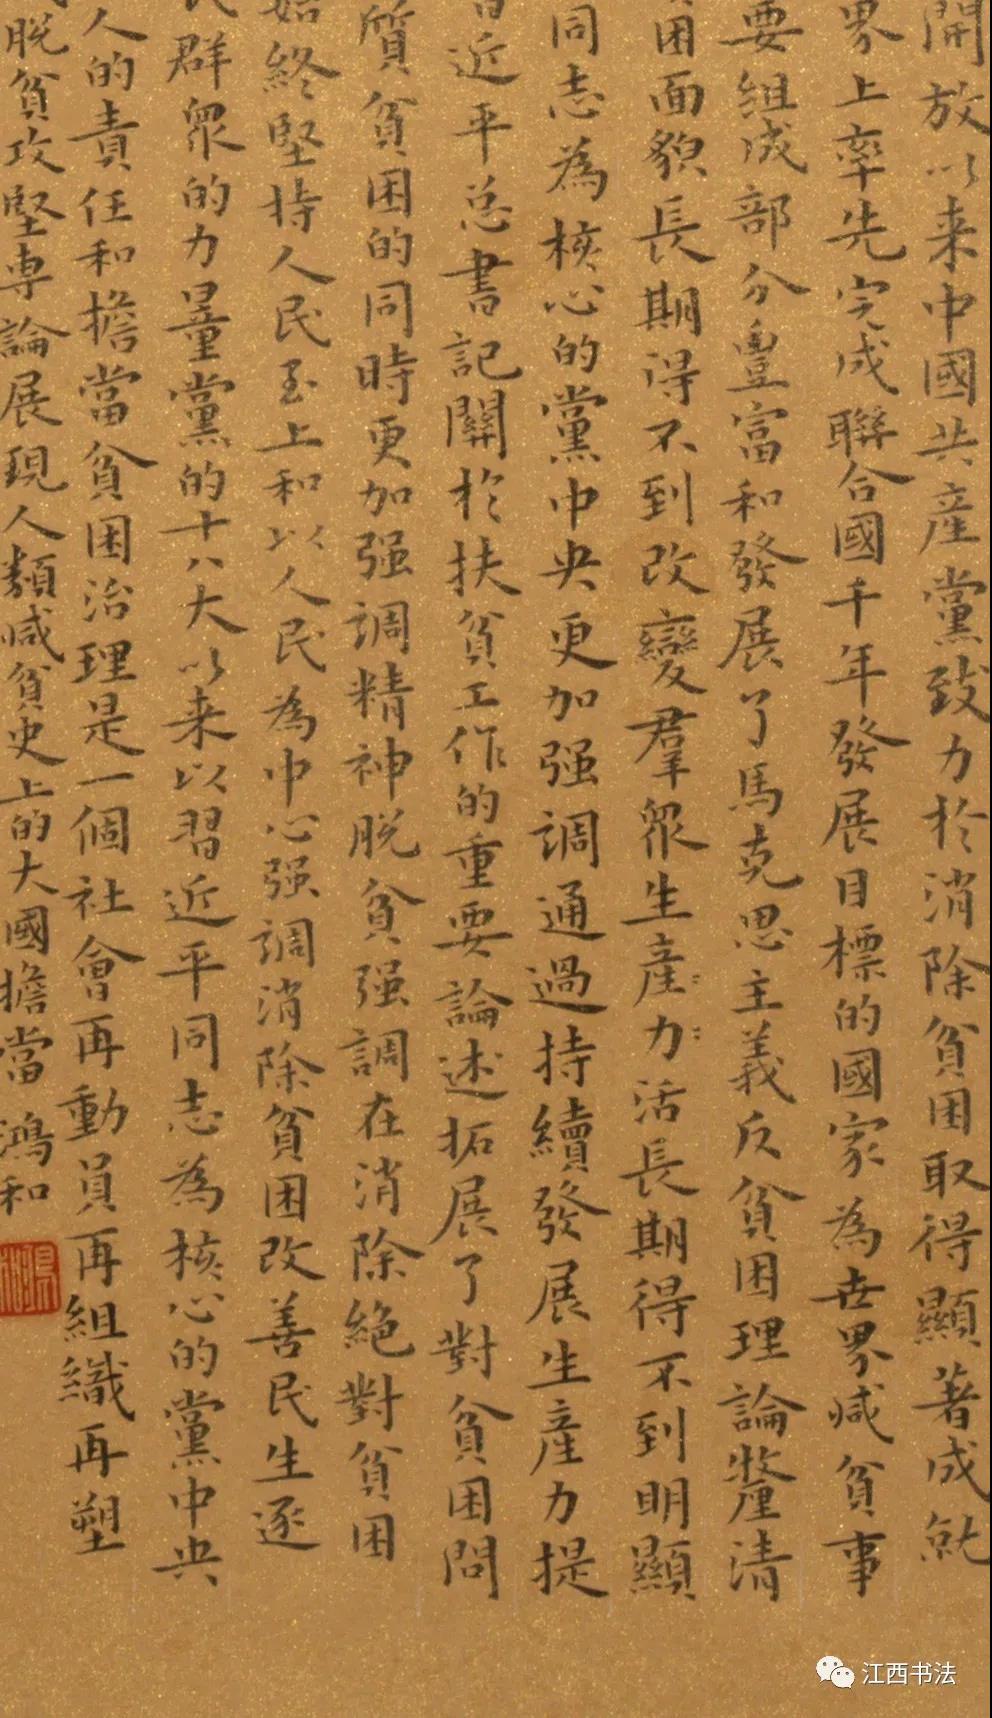 開放以来中國共産黨致力於消除貧困取得顯著成就
界上率先完成聯合國千年發展目標的國家為世界减貧事
要組成部分豐富和發展了馬克思主義反貧困理論釐清
困面貌長期得不到改變羣衆生産力活長期得不到明顯
同志為核心的黨中央更加强調通過持續發展生産力提
近平总書記關於扶貧工作的重要論述拓展了對貧困問
質貧困的同時更加强調精神脫貧强調在消除絶對貧困
始終堅持人民至上和以人民為中心强調消除貧困改善民生逐
群衆的力量黨的十八大以来以習近平同志為核心的黨中央
人的責任和擔當貧困治理是一個社會再動員再組織再塑
脫貧攻堅專論展現人類减貧史上的大國擔當 鴻和
江西书法